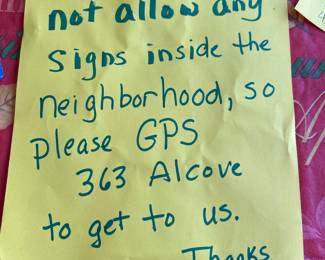 not allow any
signs inside the
neighborhood, so
please GPS
363 Alcove
to get to us.
Thanks